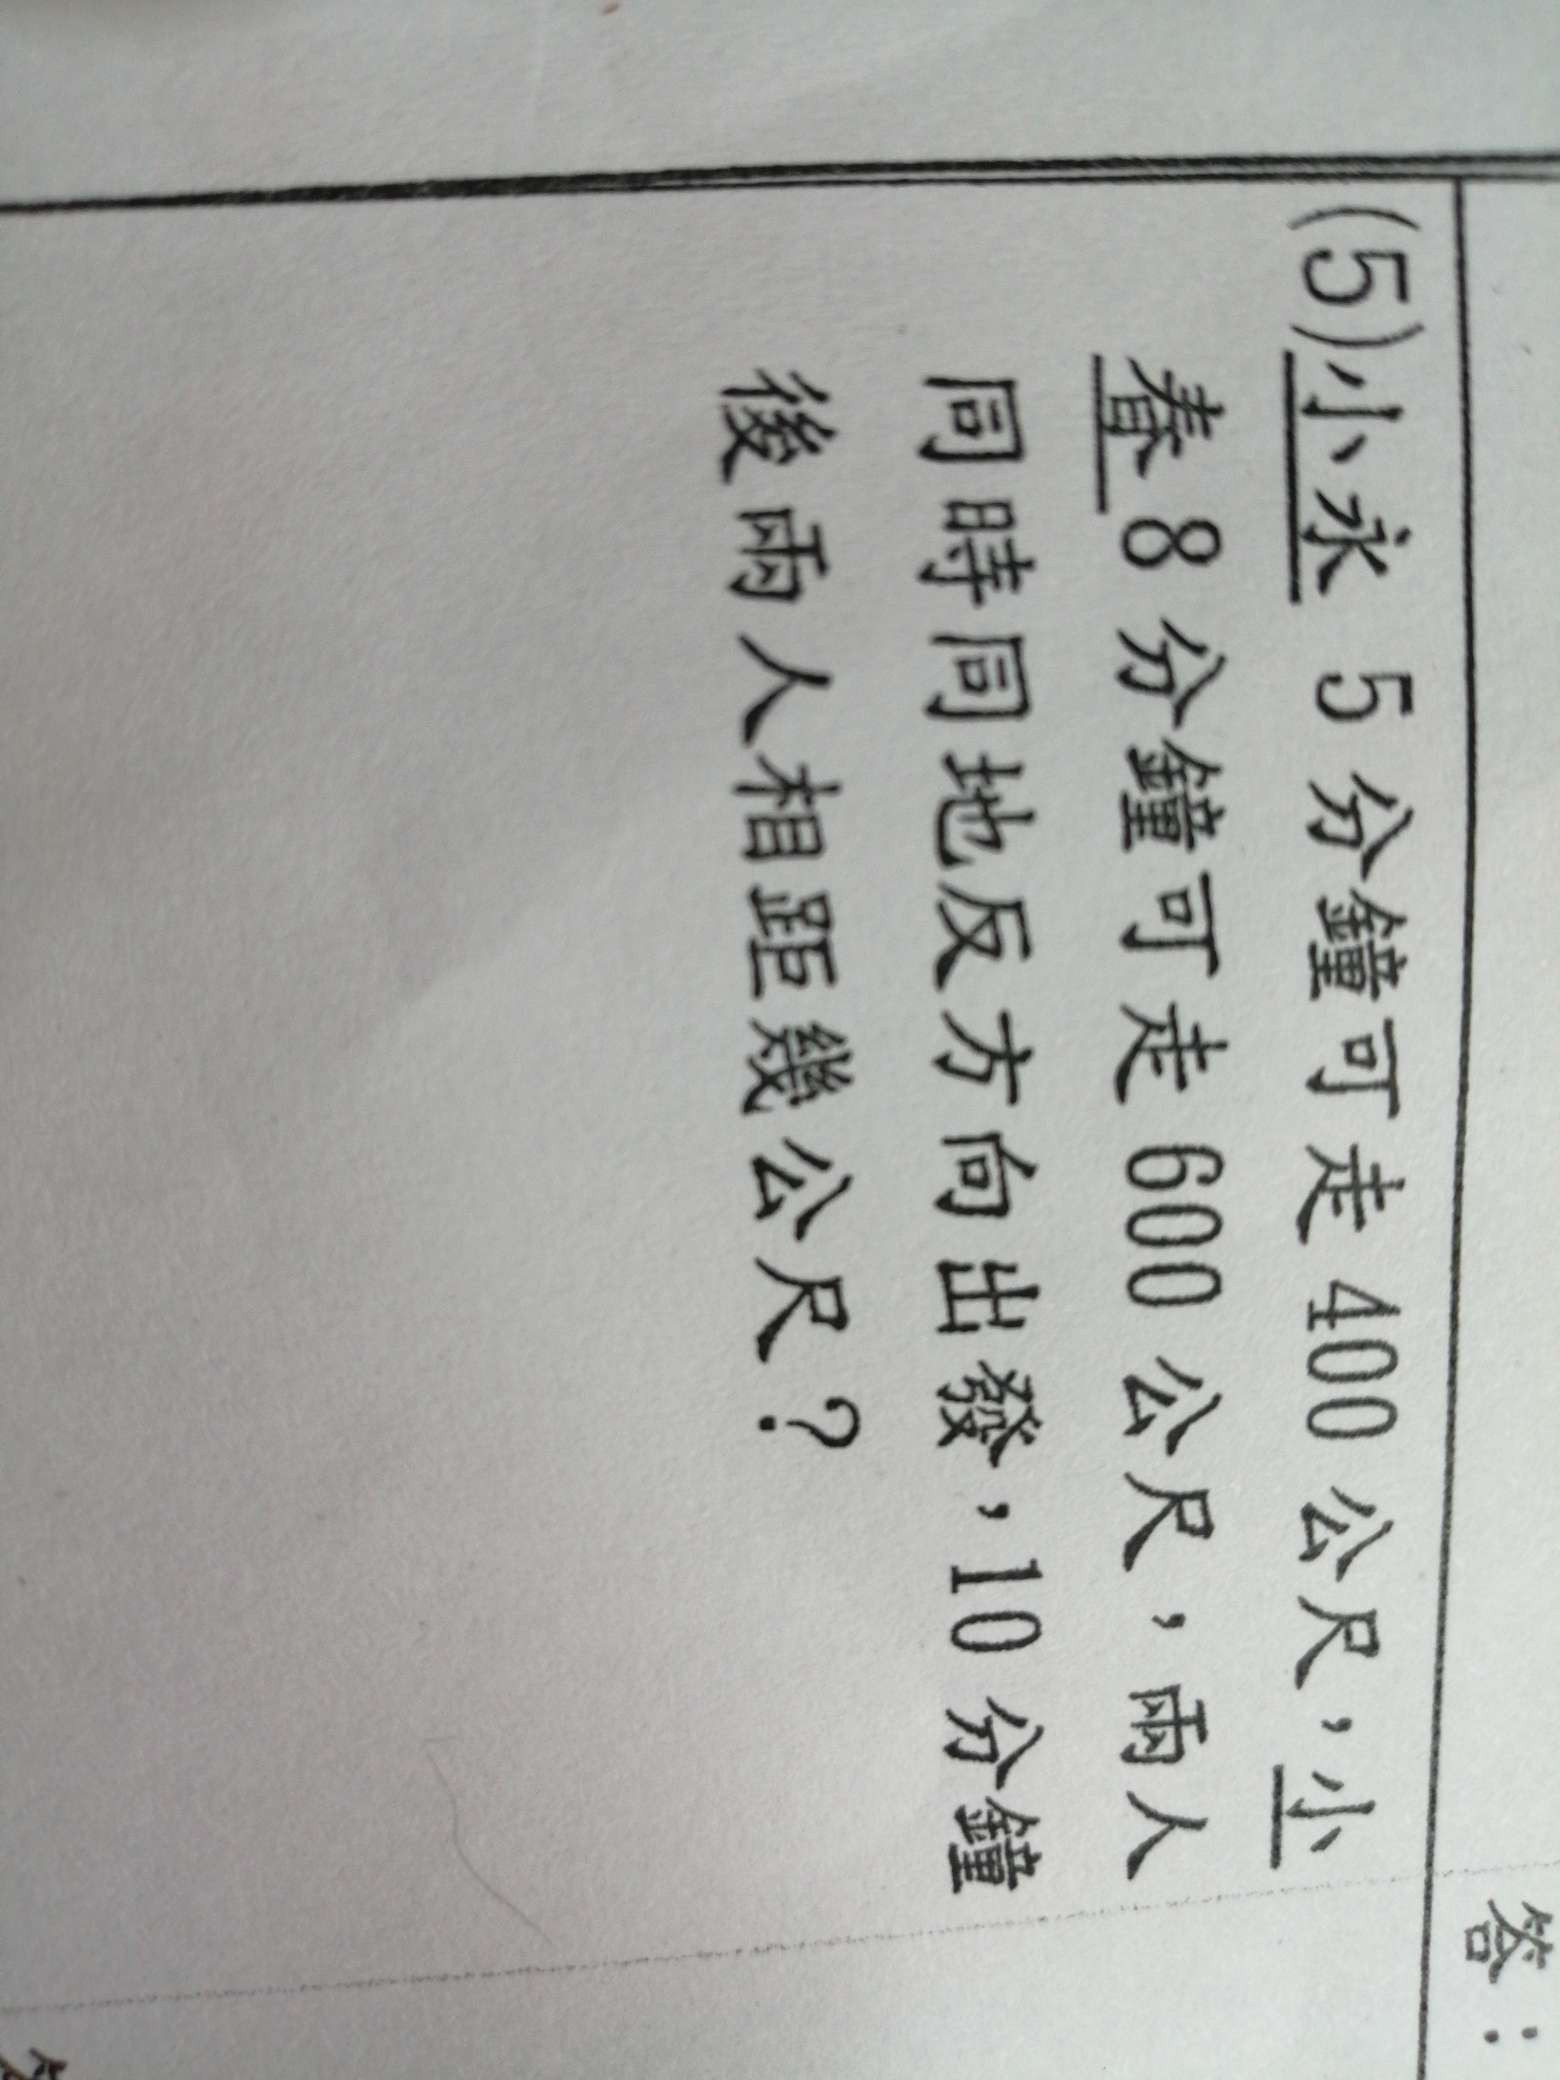 答：
(5)小永 5 分鐘可走 400 公尺，小
春 8 分鐘可走 600 公尺，雨人
同時同地反方向出發，10 分鐘
後雨人相距幾公尺？